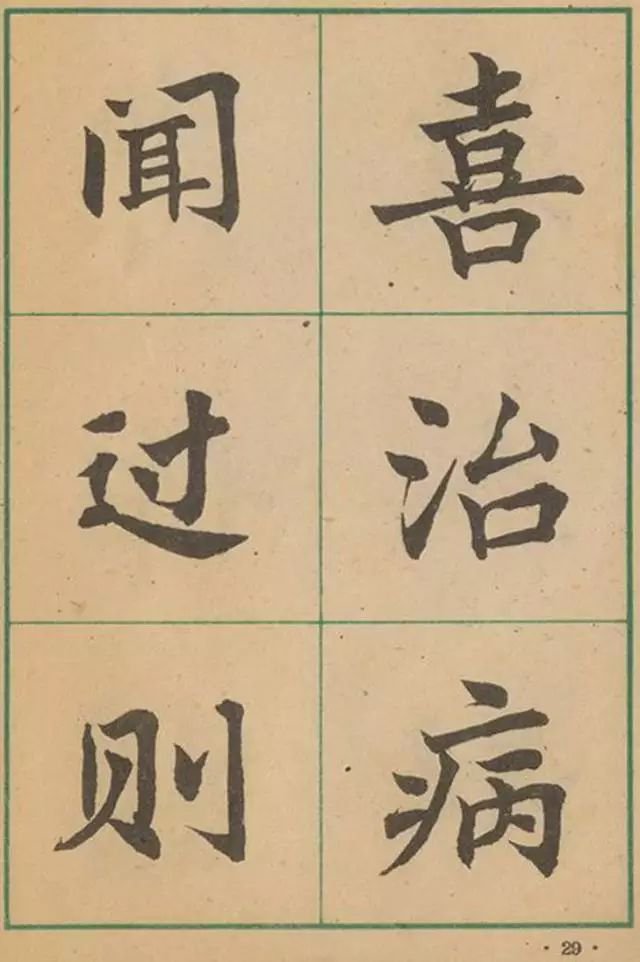 闻过则
喜治病
·29·